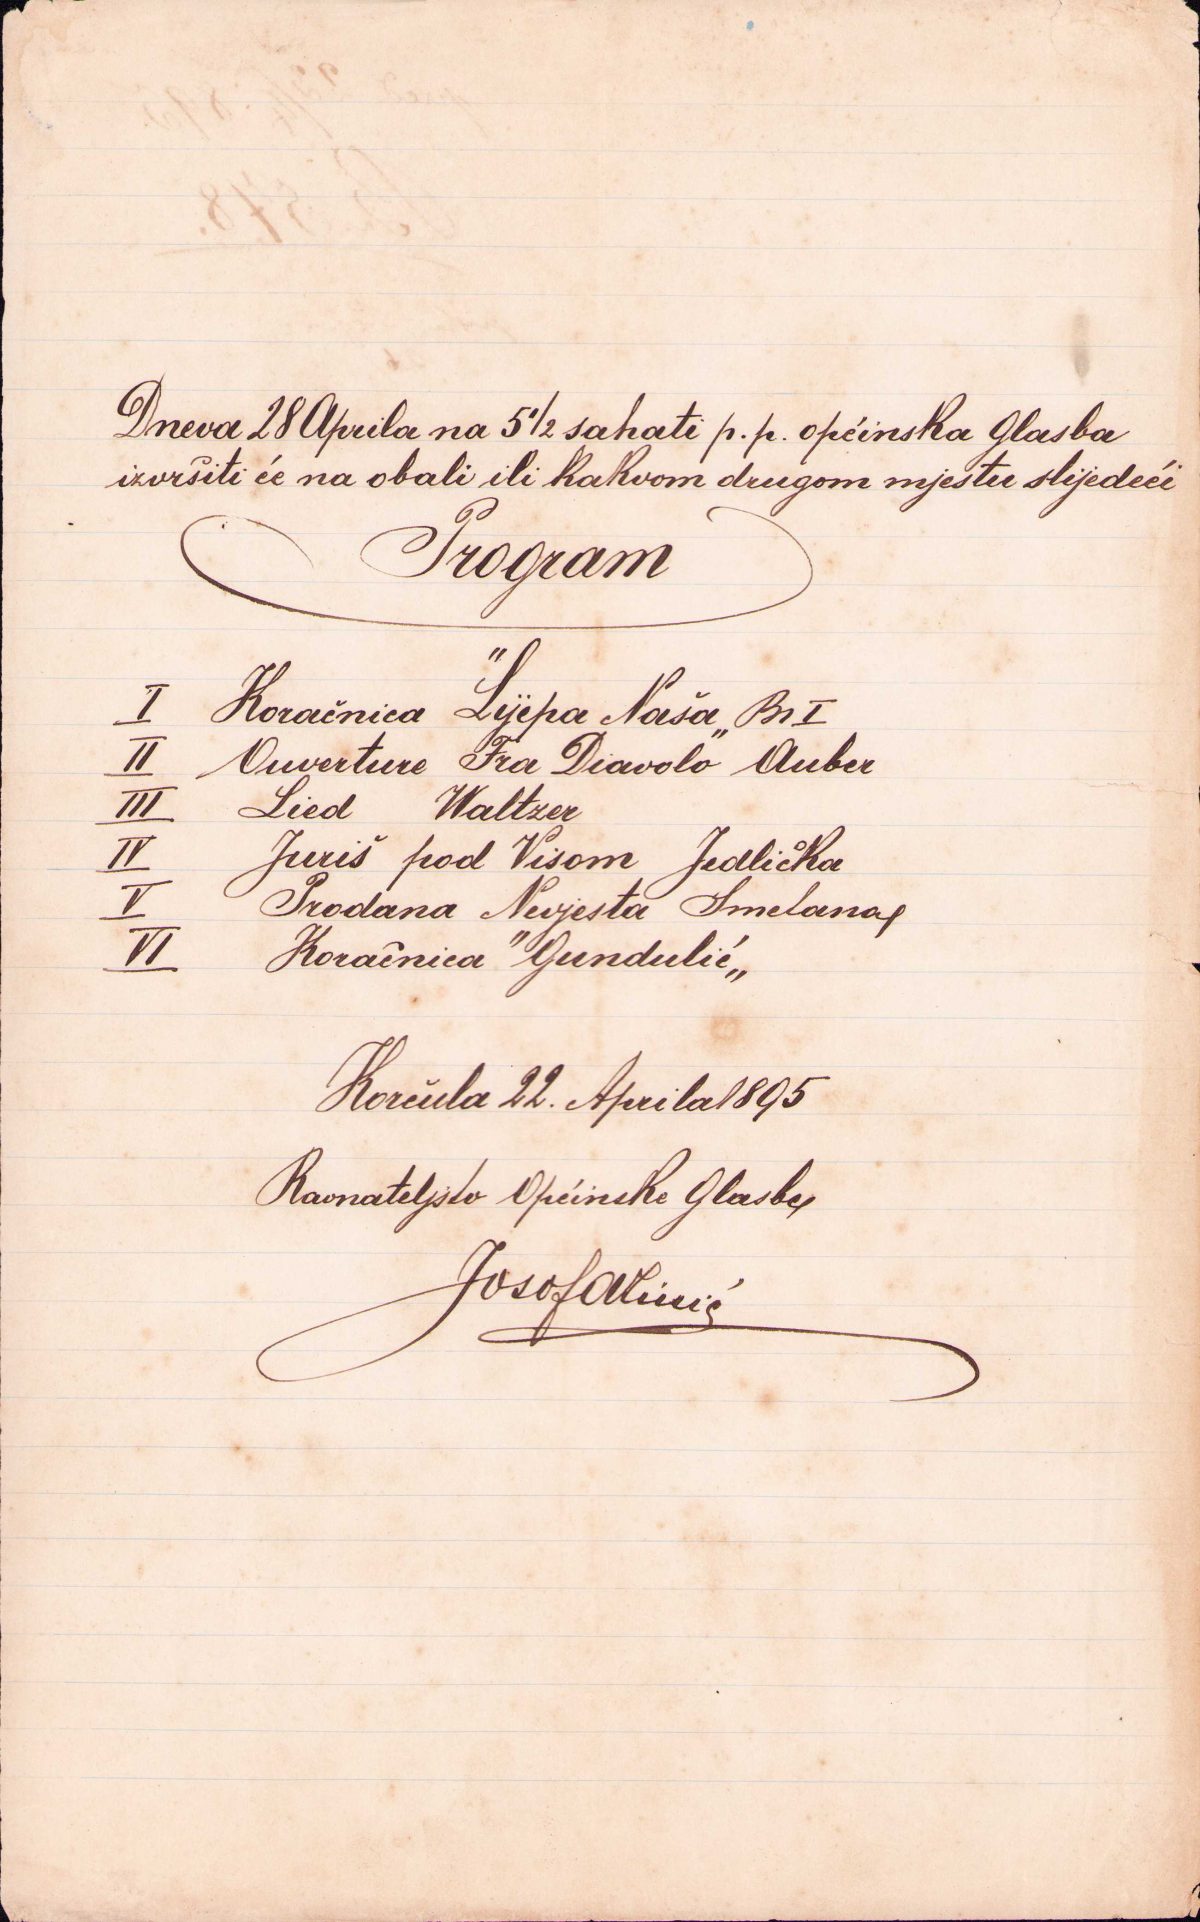 Dneva 28 Aprila na 5 1/2 sahati p. p. općinska Glasba
izvršiti će na obali ili kakvom drugom mjestu slijedeći
Program
I Koračnica "Lijepa Naša„ Br I
II Ouverture Fra Diavolo" Auber
III Lied Waltzer
IV Juriš pod Visom Jedlička
V Prodana Nevjesta Smetana
VI Koračnica "Gundulić„
Korčula 22. Aprila 1895
Ravnateljstvo Općinske Glasbe
Josof